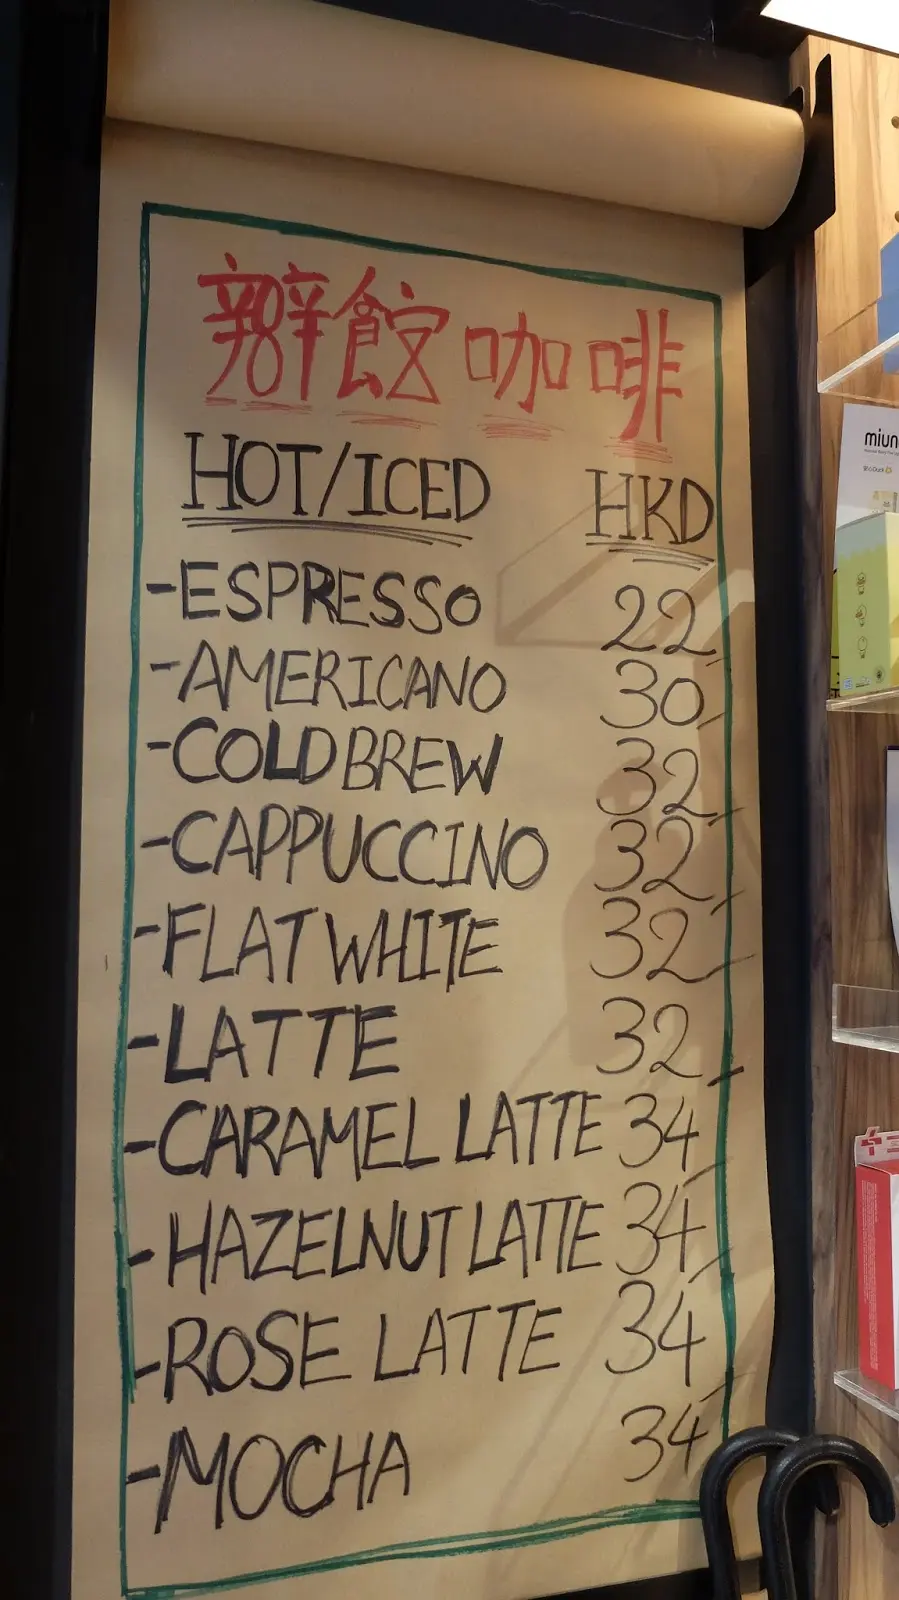 辦館咖啡
HOT/ICED HKD
-ESPRESSO 22
-AMERICANO 30
-COLD BREW 32
-CAPPUCCINO 32
-FLAT WHITE 32
-LATTE 32
-CARAMEL LATTE 34
-HAZELNUT LATTE 34
-ROSE LATTE 34
-MOCHA 34
miun